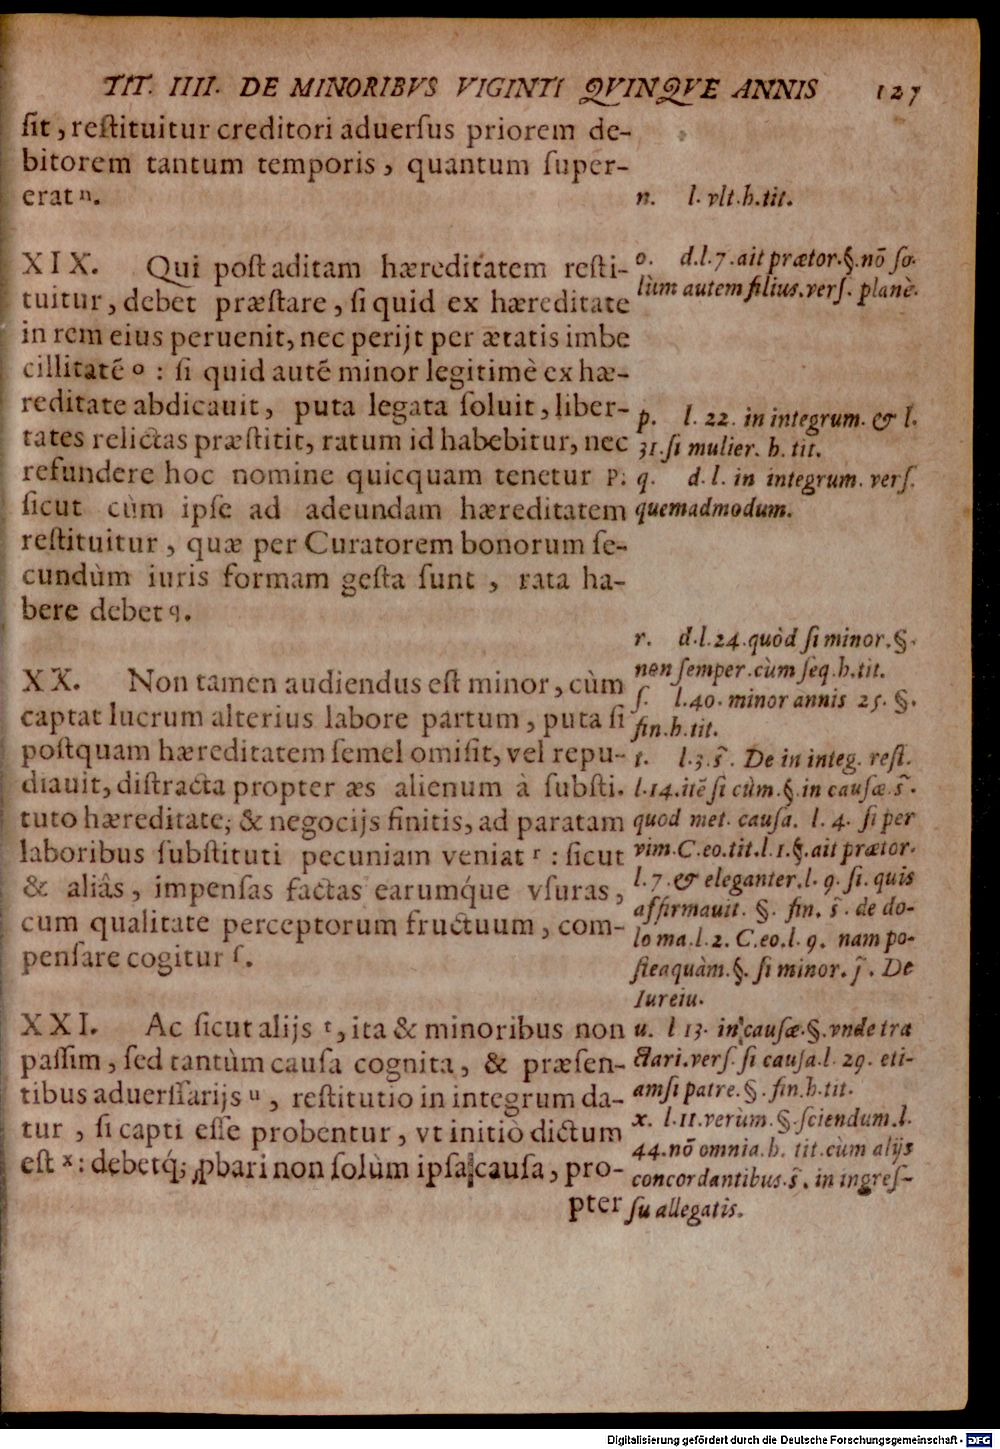 TIT. IIII. DE MINORIBVS VIGINTI QVINQVE ANNIS 127
ſit, reſtituitur creditori aduerſus priorem de-
bitorem tantum temporis, quantum ſuper-
erat ⁿ.
XIX. Qui poſt aditam hæreditatem reſti-
tuitur, debet præſtare, ſi quid ex hæreditate
in rem eius peruenit, nec perijt per ætatis imbe
cillitatē ᵒ : ſi quid autē minor legitimè ex hæ-
reditate abdicauit, puta legata ſoluit, liber-
tates relictas præſtitit, ratum id habebitur, nec
refundere hoc nomine quicquam tenetur ᵖ:
ſicut cùm ipſe ad adeundam hæreditatem
reſtituitur, quæ per Curatorem bonorum ſe-
cundùm iuris formam geſta ſunt, rata ha-
bere debet q.
XX. Non tamen audiendus eſt minor, cùm
captat lucrum alterius labore partum, puta ſi
poſtquam hæreditatem ſemel omiſit, vel repu-
diauit, diſtracta propter æs alienum à ſubſti-
tuto hæreditate, & negocijs finitis, ad paratam
laboribus ſubſtituti pecuniam veniat ʳ : ſicut
& aliâs, impenſas factas earumq́ue vſuras,
cum qualitate perceptorum fructuum, com-
penſare cogitur ſ.
XXI. Ac ſicut alijs ᵗ, ita & minoribus non
paſſim, ſed tantùm cauſa cognita, & præſen-
tibus aduerſſarijs ᵘ, reſtitutio in integrum da-
tur, ſi capti eſſe probentur, vt initiò dictum
eſt ˣ: debetq́; ꝓbari non ſolùm ipſa cauſa, pro-
pter
n. l. vlt. h. tit.
o. d. l. 7. ait prætor. §. nō ſo-
lùm autem filius. verſ. planè.
p. l. 22. in integrum. & l.
31. ſi mulier. h. tit.
q. d. l. in integrum. verſ.
quemadmodum.
r. d. l. 24. quòd ſi minor. §.
non ſemper. cùm ſeq. h. tit.
ſ. l. 40. minor annis 25. §.
fin. h. tit.
t. l. 3. s̃. De in integ. reſt.
l. 14. itē ſi cùm. §. in cauſæ. s̃.
quod met. cauſa. l. 4. ſi per
vim. C. eo. tit. l. 1. §. ait prætor.
l. 7. & eleganter. l. 9. ſi. quis
affirmauit. §. fin. s̃. de do-
lo ma. l. 2. C. eo. l. 9. nam po-
ſteaquàm. §. ſi minor. ſ̃. De
Iureiu.
u. l 13. in cauſæ. §. vnde tra
ctari. verſ. ſi cauſa. l. 29. eti-
amſi patre. §. fin. h. tit.
x. l. 11. verùm. §. ſciendum. l.
44. nō omnia. h. tit. cùm alijs
concordantibus. s̃. in ingreſ-
ſu allegatis.
Digitalisierung gefördert durch die Deutsche Forschungsgemeinschaft - DFG